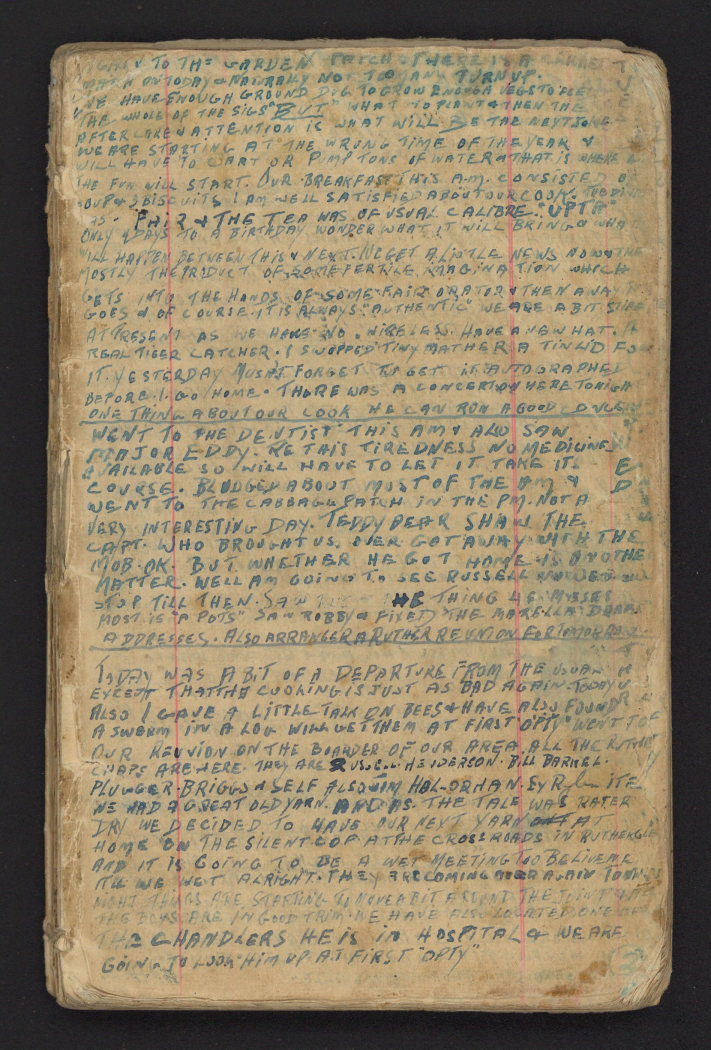 TO THE GARDEN PATCH. THERE IS A
ON TODAY & NATURALLY NOT TOO MANY TURN UP.
WE HAVE ENOUGH GROUND DUG TO GROW ENOUGH VEGS TO FEED
THE WHOLE OF THE SIGS "BUT" WHAT TO PLANT & THEN THE
AFTER CARE & ATTENTION IS WHAT WILL BE THE NEXT JOKE
WE ARE STARTING AT THE WRONG TIME OF THE YEAR &
WILL HAVE TO CART OR PUMP TONS OF WATER & THAT IS WHERE
THE FUN WILL START. OUR BREAKFAST THIS A.M. CONSISTED OF
SOUP & 3 BISCUITS I AM WELL SATISFIED ABOUT OUR COOK.
WAS. PHIR & THE TEA WAS OF USUAL CALIBRE. "UPTA"
ONLY 4 DAYS TO A BIRTHDAY WONDER WHAT IT WILL BRING & WHAT
WILL HAPPEN BETWEEN THIS & NEXT. WE GET A LITTLE NEWS NOW & THEN
MOSTLY THE PRODUCT OF SOME FERTILE IMAGINATION WHICH
GETS INTO THE HANDS OF SOME FAIR ORATOR & THEN AWAY IT
GOES & OF COURSE IT IS ALWAYS "AUTHENTIC" WE ARE A BIT STIFF
AT PRESENT AS WE HAVE NO WIRELESS. HAVE A NEW HAT. A
REAL TIGER CATCHER. I SWOPPED TINY MATHER A TIN LID FOR
IT. YESTERDAY MUSNT FORGET TO GET IT AUTOGRAPHED
BEFORE I GO HOME. THERE WAS A CONCERT ON HERE TONIGHT
ONE THING ABOUT OUR COOK HE CAN RUN A GOOD
WENT TO THE DENTIST THIS AM & ALSO SAW
MAJOR EDDY. RE THIS TIREDNESS NO MEDICINES
AVAILABLE SO WILL HAVE TO LET IT TAKE ITS
COURSE. BLUDGED ABOUT MOST OF THE AM &
WENT TO THE CABBAGE PATCH IN THE PM. NOT A
VERY INTERESTING DAY. TEDDY BEAR SHAW THE
CAPT. WHO BROUGHT US OVER GOT AWAY WITH THE
MOB OK. BUT WHETHER HE GOT HOME IS ANOTHER
MATTER. WELL AM GOING TO SEE RUSSELL
STOP TILL THEN. SAW THE THING HE MISSES
MOST IS "A POTS" SAW ROBBY & FIXED THE
ADDRESSES. ALSO ARRANGED A RUTHER REUNION FOR TOMORROW
TODAY WAS A BIT OF A DEPARTURE FROM THE USUAL
EXCEPT THAT THE COOKING IS JUST AS BAD AGAIN TODAY
ALSO I GAVE A LITTLE TALK ON BEES & HAVE ALSO FOUND
A SWORM IN A LOG WILL GET THEM AT FIRST "OPTY" WENT TO
OUR REUVION ON THE BOARDER OF OUR AREA. ALL THE RUTHER
CHAPS ARE HERE. THEY ARE RUSSELL HENDERSON. BILL BARNEL.
PLUGGER BRIGGS & SELF ALSO JIM HAL-ORHAN. SY
WE HAD A GREAT OLD YARN. AND AS THE TALE WAS RATER
DRY WE DECIDED TO HAVE OUR NEXT YARN OFF AT
HOME ON THE SILENT COP AT THE CROSSROADS IN RUTHERGLE
AND IT IS GOING TO BE A WET MEETING TOO BELIEVE ME
ITLL WE WET ALRIGHT. THEY ARE COMING OVER AGAIN TOMOR
NIGHT THINGS ARE STARTING TO MOVE A BIT AROUND THE JOINT
THE BOYS ARE IN GOOD TRIM. WE HAVE ALSO LOCATED ONE OF
THE CHANDLERS HE IS IN HOSPITAL & WE ARE
GOING TO LOOK HIM UP AT FIRST "OPTY"